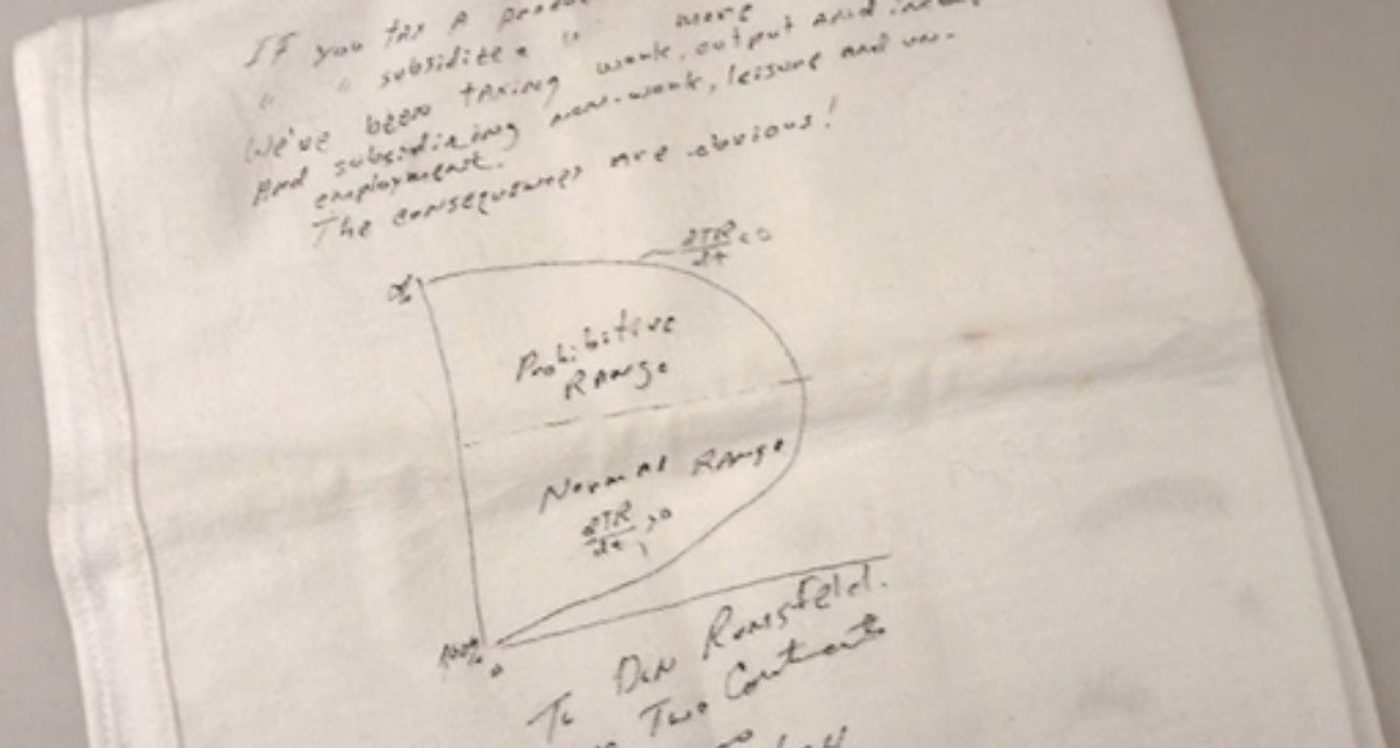 If you tax a product
" " subsidize a " more
We've been taxing work, output and income
And subsidizing non-work, leisure and un-
employment.
The consequences are obvious!
∂TR/∂t <0
%
Prohibitive
Range
Normal Range
∂TR/∂t >0
100%
0
To Don Rumsfeld.
Two Continents